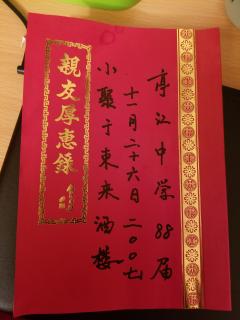 亭江中学88届
十一月二十六日二00七
小聚于東来酒楼
親友厚惠錄